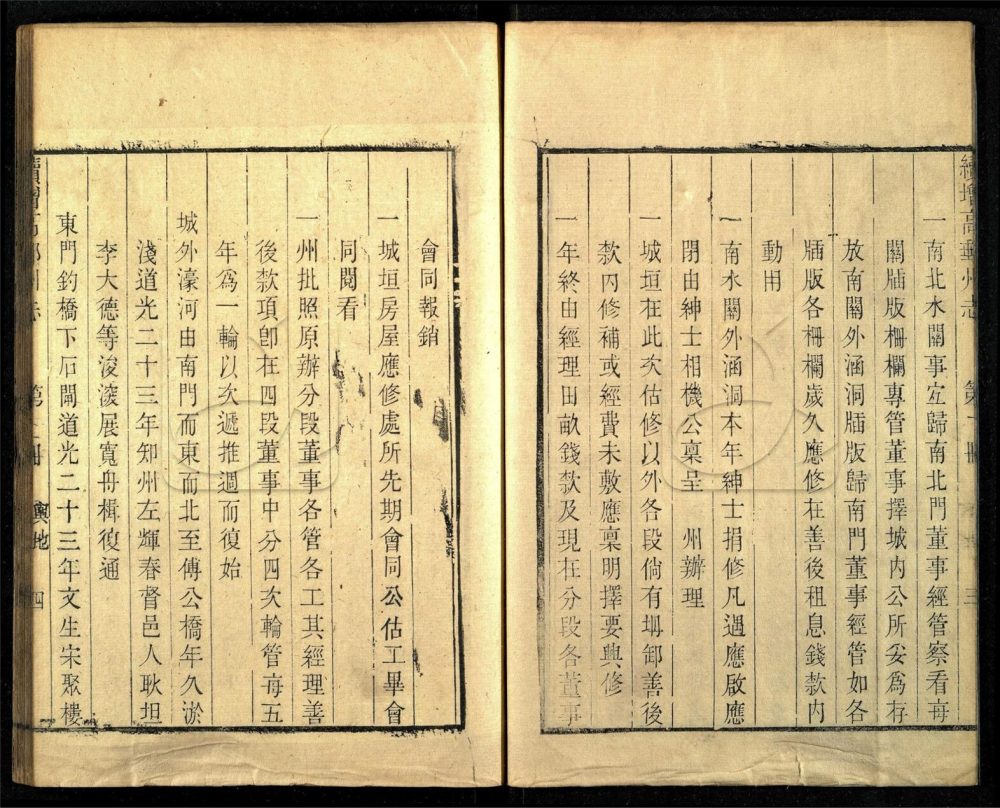 續增高郵州志 第一冊 三
一南北水關事宜歸南北門董事經管察看每
關牐版柵欄專管董事擇城內公所妥為存
放南關外涵洞牐版歸南門董事經管如各
牐版各柵欄歲久應修在善後租息錢款內
動用
一南水關外涵洞本年紳士捐修凡遇應啟應
閉由紳士相機公稟呈 州辦理
一城垣在此次估修以外各段倘有坍卸善後
款內修補或經費未敷應稟明擇要興修
一年終由經理田畝錢款及現在分段各董事
會同報銷
一城垣房屋應修處所先期會同公估工畢會
同閱看
一州批照原辦分段董事各管各工其經理善
後款項卽在四段董事中分四次輪管每五
年為一輪以次遞推週而復始
城外濠河由南門而東而北至傅公橋年久淤
淺道光二十三年知州左輝春督邑人耿坦
李大德等浚濬展寬舟楫復通
東門釣橋下石閘道光二十三年文生宋聚樓
續增高郵州志 第一冊 輿地 四